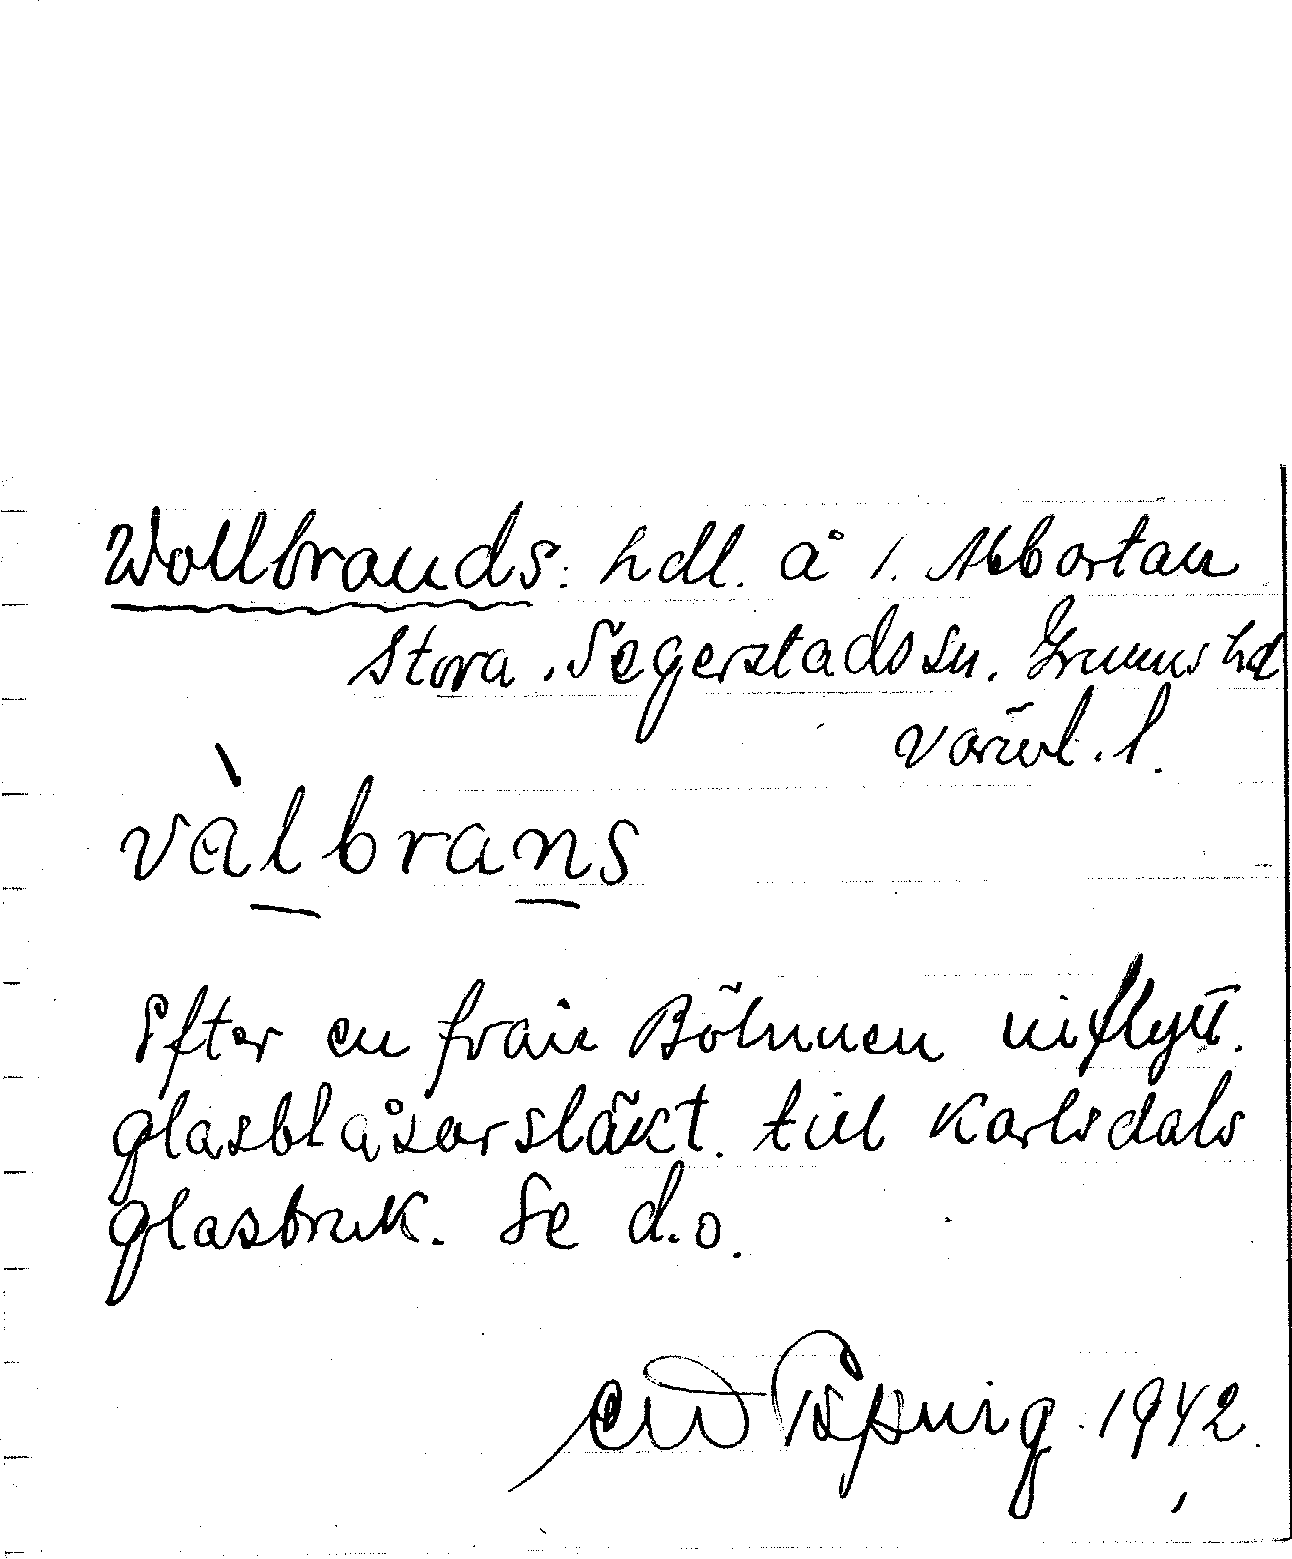 Wollbrands: hdl. å 1. Abbortan
Stora. Segerstads sn. Grums hd
Värml. l.
vàlbrans
Efter en från Böhmen inflytt.
glasblåsarsläkt. till Karlsdals
glasbruk. Se d.o.
1942.